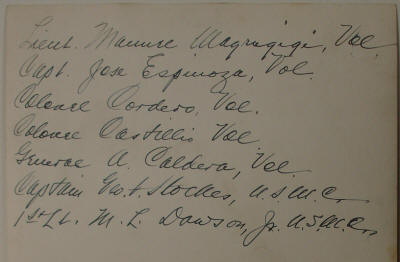 Lieut. Manuel Wagragigi, Vol.
Capt. Jose Espinoza, Vol.
Colonel Cordero, Vol.
Colonel Castillo Vol
General A. Caldera, Vol.
Captain Geo. F. Stockes, U.S.M.C.,
1st Lt. M. L. Dawson, Jr. U.S.M.C.,